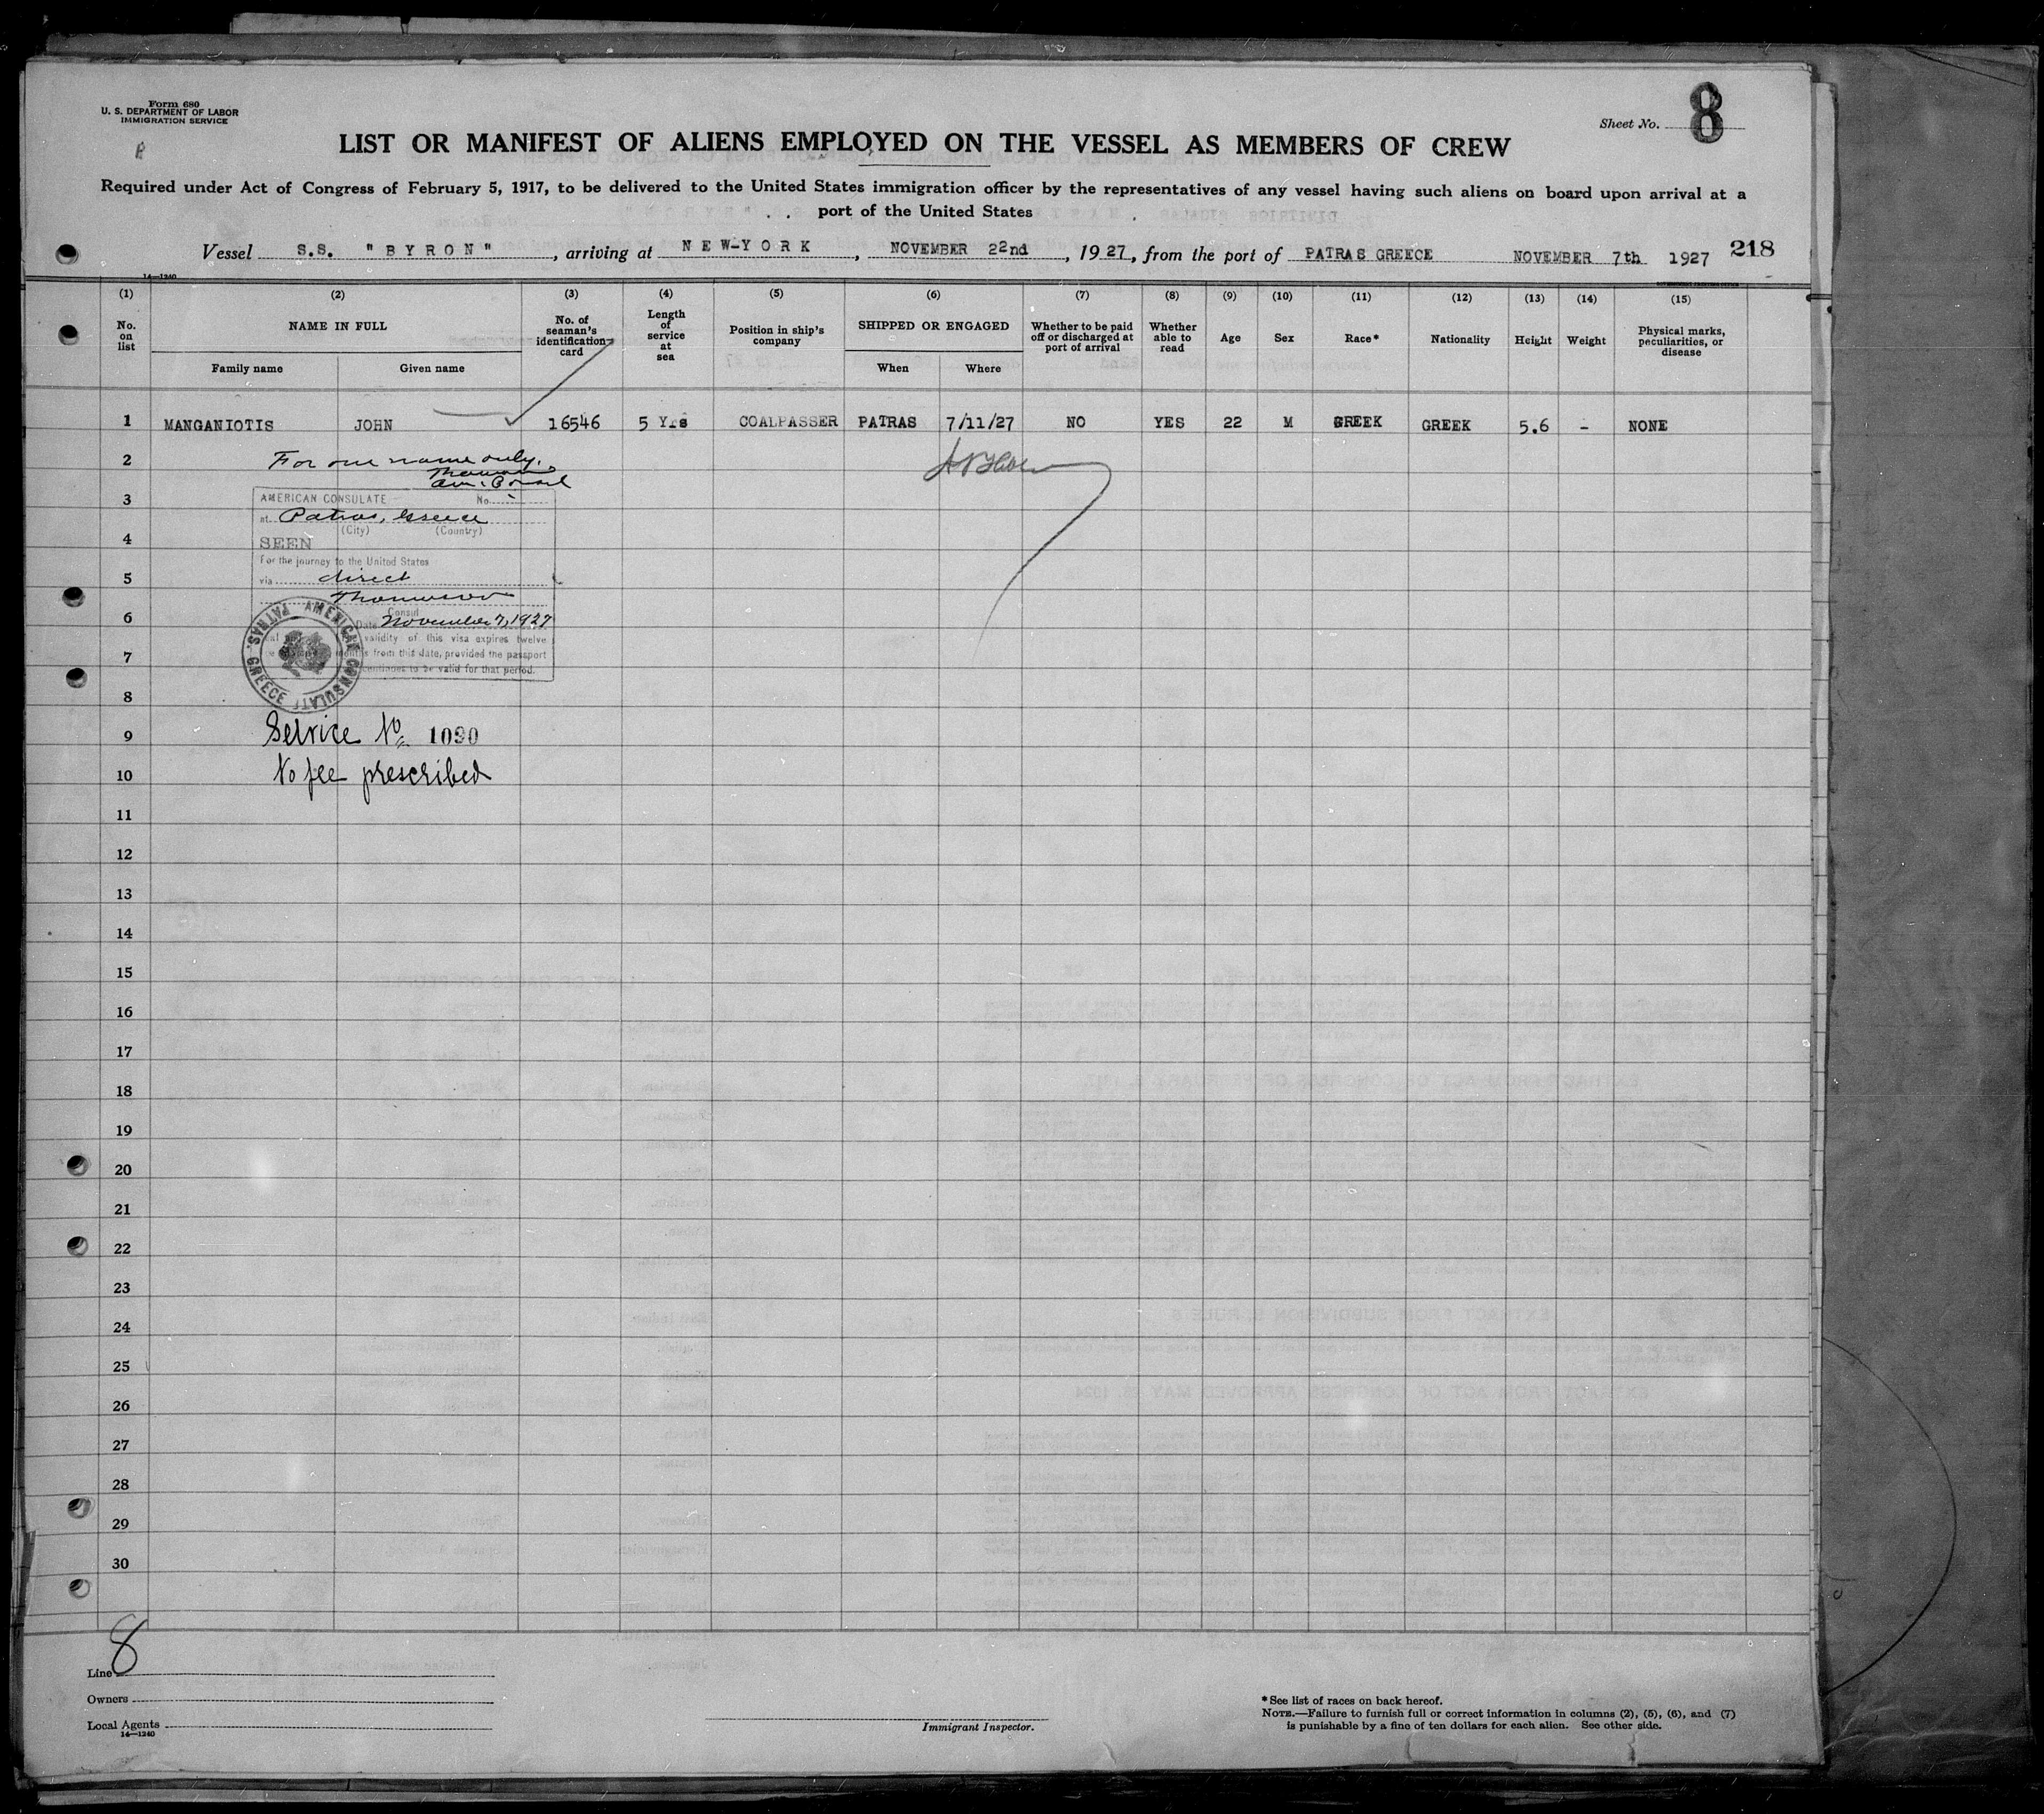 Form 680
U. S. DEPARTMENT OF LABOR
IMMIGRATION SERVICE
Sheet No. 8
LIST OR MANIFEST OF ALIENS EMPLOYED ON THE VESSEL AS MEMBERS OF CREW
Required under Act of Congress of February 5, 1917, to be delivered to the United States immigration officer by the representatives of any vessel having such aliens on board upon arrival at a
port of the United States
Vessel S.S. "BYRON", arriving at NEW-YORK, NOVEMBER 22nd, 1927, from the port of PATRAS GREECE NOVEMBER 7th 1927 218
14—1240
(1) (2) (3) (4) (5) (6) (7) (8) (9) (10) (11) (12) (13) (14) (15)
No. on list
NAME IN FULL
Family name
Given name
No. of seaman's identification card
Length of service at sea
Position in ship's company
SHIPPED OR ENGAGED
When
Where
Whether to be paid off or discharged at port of arrival
Whether able to read
Age
Sex
Race*
Nationality
Height
Weight
Physical marks, peculiarities, or disease
1 MANGANIOTIS JOHN 16546 5 Yrs COALPASSER PATRAS 7/11/27 NO YES 22 M GREEK GREEK 5.6 - NONE
2
For one name only.
Am. Consul
3
AMERICAN CONSULATE No.
at Patras, Greece
(City) (Country)
4
SEEN
For the journey to the United States
5
via direct
Consul
6
Date November 7, 1927
validity of this visa expires twelve
7
months from this date, provided the passport
continues to be valid for that period.
AMERICAN CONSULATE PATRAS, GREECE
8
9
Service No 1090
10
No fee prescribed
11
12
13
14
15
16
17
18
19
20
21
22
23
24
25
26
27
28
29
30
8
Line
Owners
Local Agents
14—1240
Immigrant Inspector.
*See list of races on back hereof.
NOTE.—Failure to furnish full or correct information in columns (2), (5), (6), and (7)
is punishable by a fine of ten dollars for each alien. See other side.